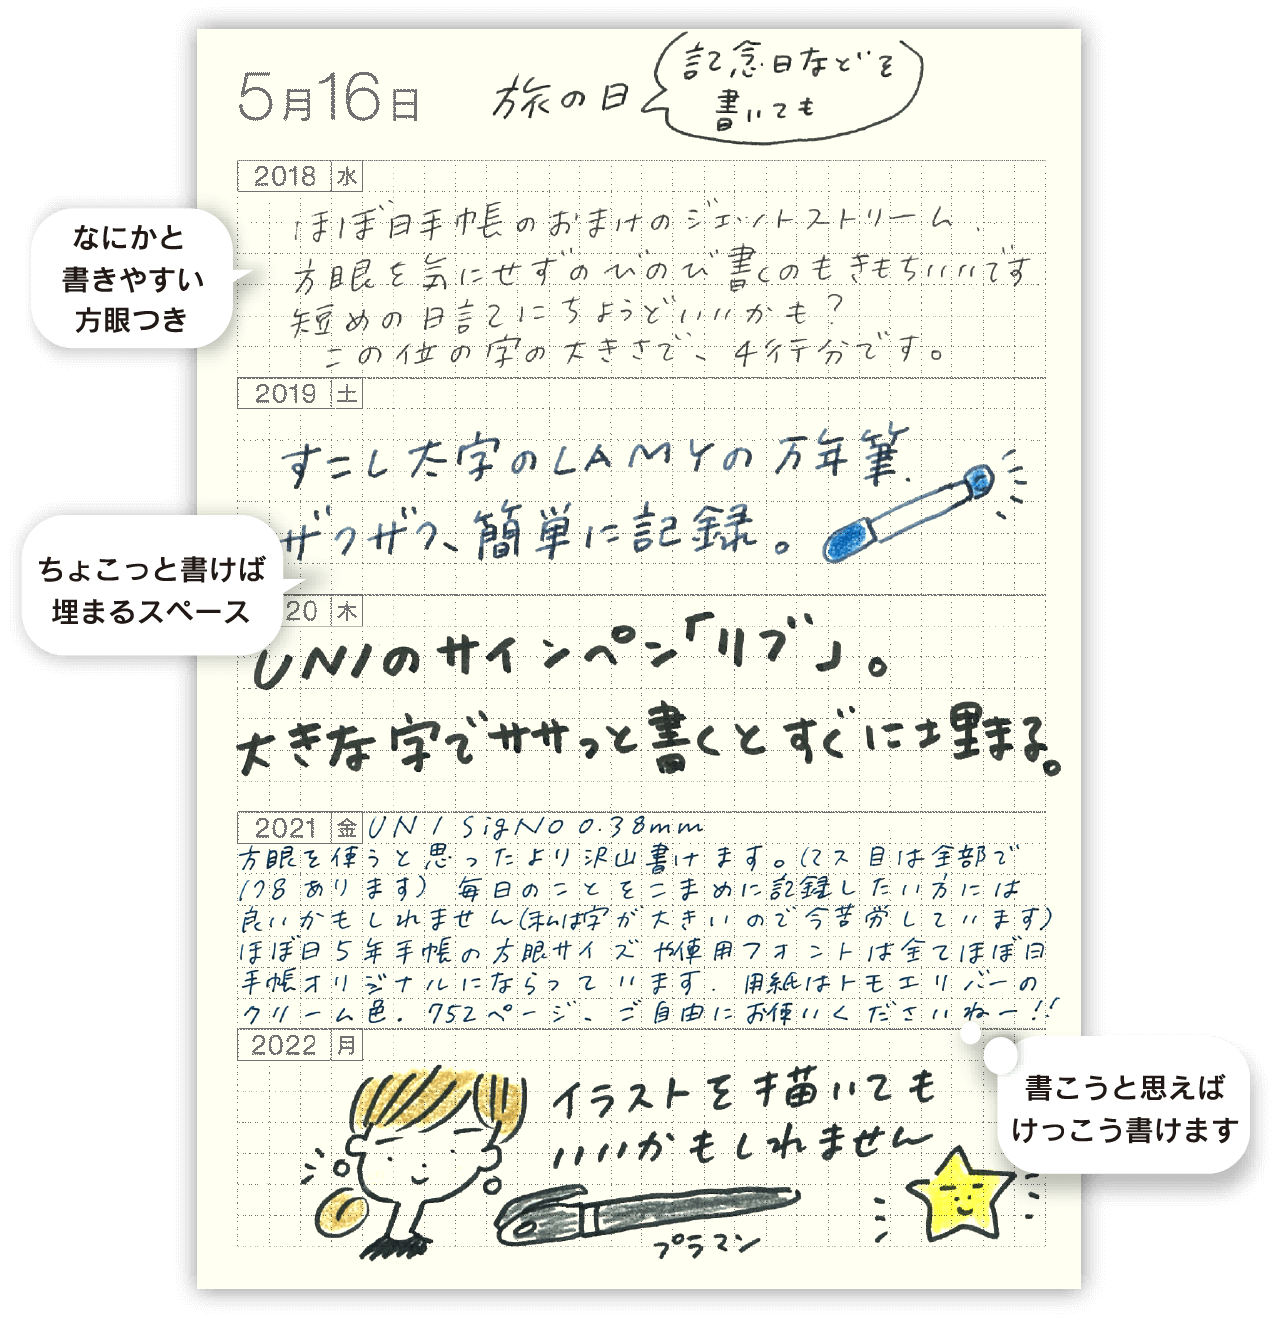 5月16日
旅の日
記念日などを
書いても
2018 水
なにかと
書きやすい
方眼つき
ほぼ日手帳のおまけのジェットストリーム.
方眼を気にせずのびのび書くのもきもちいいです
短めの日記にちょうどいいかも?
この位の字の大きさで、4行分です。
2019 土
すこし太字のLAMYの万年筆.
ザクザク、簡単に記録。
ちょこっと書けば
埋まるスペース
20 木
UNIのサインペン「リブ」。
大きな字でササっと書くとすぐに埋まる。
2021 金 UNI SigNO 0.38mm
方眼を使うと思ったより沢山書けます。(マス目は全部で
178あります) 毎日のことをこまめに記録したい方には
良いかもしれません(私は字が大きいので今苦労しています)
ほぼ日5年手帳の方眼サイズや使用フォントは全てほぼ日
手帳オリジナルにならっています. 用紙はトモエリバーの
クリーム色. 752ページ、ご自由にお使いくださいねー!!
2022 月
書こうと思えば
けっこう書けます
イラストを描いても
いいかもしれません
プラマン